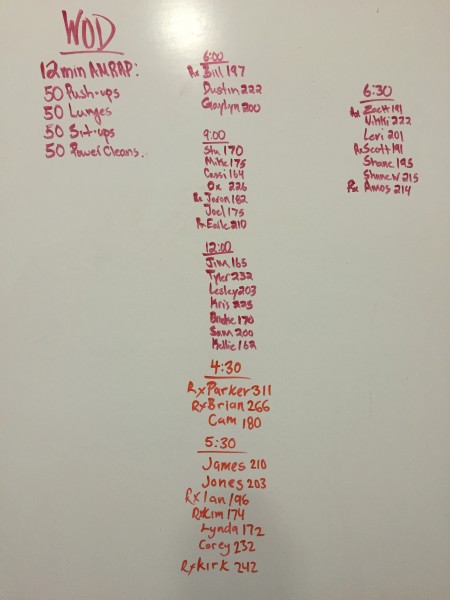 WOD
12 min AMRAP:
50 Push-ups
50 Lunges
50 Sit-ups
50 Power Cleans.
6:00
Rx Bill 197
Dustin 222
Gaylyn 200
9:00
Stu 170
Mike 175
Cassi 164
Ox 226
Rx Jaron 182
Joel 175
Rx Earle 210
12:00
Jim 165
Tyler 232
Lesley 203
Kris 225
Brooke 170
Sam 200
Kellie 162
4:30
Rx Parker 311
Rx Brian 266
Cam 180
5:30
James 210
Jones 203
Rx Ian 196
Rx Kim 174
Lynda 172
Corey 232
Rx Kirk 242
6:30
Rx 191
Nikki 222
Levi 201
Rx Scott 191
Shane 195
Shane W 215
Rx Amos 214